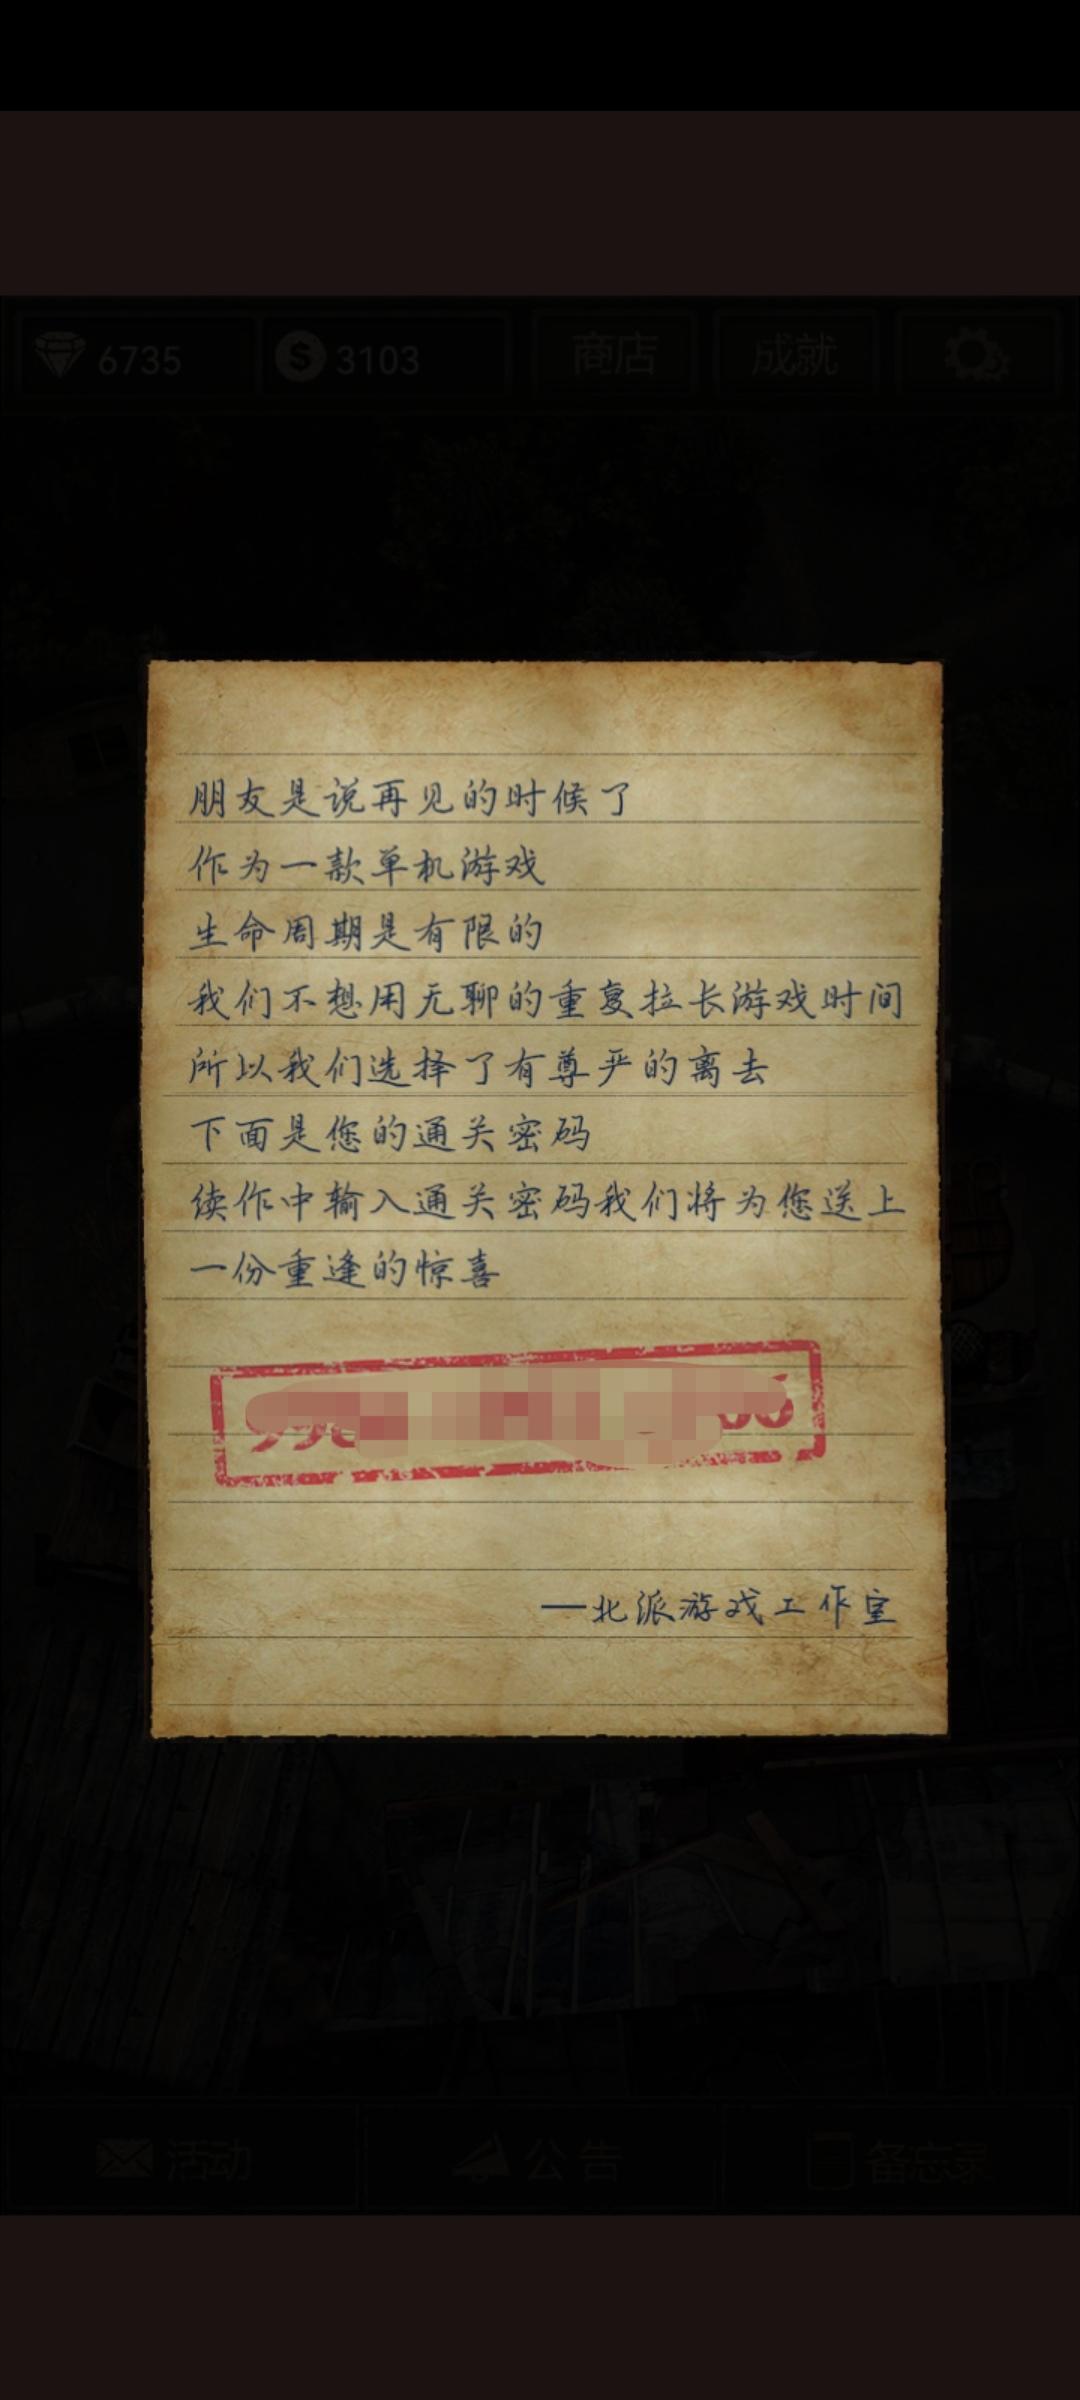 6735
3103
商店
成就
朋友是说再见的时候了
作为一款单机游戏
生命周期是有限的
我们不想用无聊的重复拉长游戏时间
所以我们选择了有尊严的离去
下面是您的通关密码
续作中输入通关密码我们将为您送上
一份重逢的惊喜
—北派游戏工作室
活动
公告
备忘录